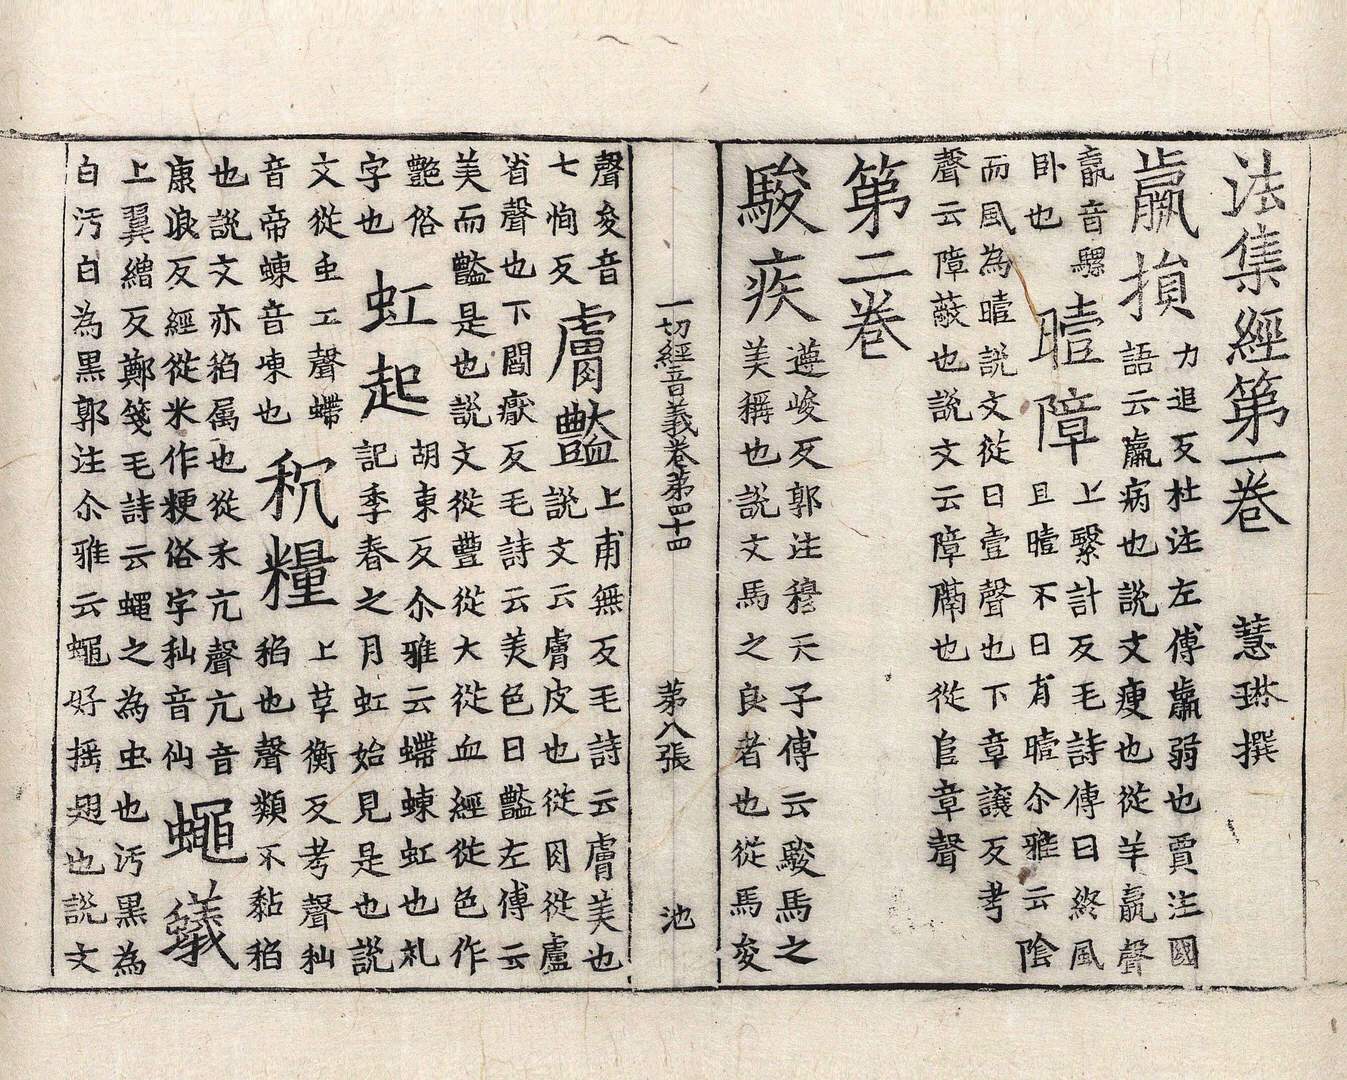 法集經第一卷　慧琳撰
羸損　力追反杜注左傳羸弱也賈注國
語云羸病也說文瘦也從羊𣎆聲
𣎆音騾　曀障　上繄計反毛詩傳曰終風
且曀不日有曀尒雅云陰
而風為曀說文從日壹聲也下章讓反考
聲云障蔽也說文云障隔也從𨸏章聲
第二卷
駿疾　遵峻反郭注穆天子傳云駿馬之
美稱也說文馬之良者也從馬夋
一切經音義卷第四十四　第八張　池
聲夋音
七恂反　膚豔　上甫無反毛詩云膚美也
說文云膚皮也從肉從盧
省聲也下閻猒反毛詩云美色曰豔左傅云
美而豔是也說文從豐從大從血經從色作
艷俗
字也　虹起　胡東反尒雅云螮蝀虹也礼
記季春之月虹始見是也說
文從虫工聲螮
音帝蝀音東也　秔糧　上草衡反考聲秈
稻也聲類不黏稻
也說文亦稻属也從禾亢聲亢音
康浪反經從米作粳俗字秈音仙　蠅蟻
上翼繒反鄭箋毛詩云蠅之為虫也汚黑為
白汚白為黑郭注尒雅云蠅好搖翅也說文